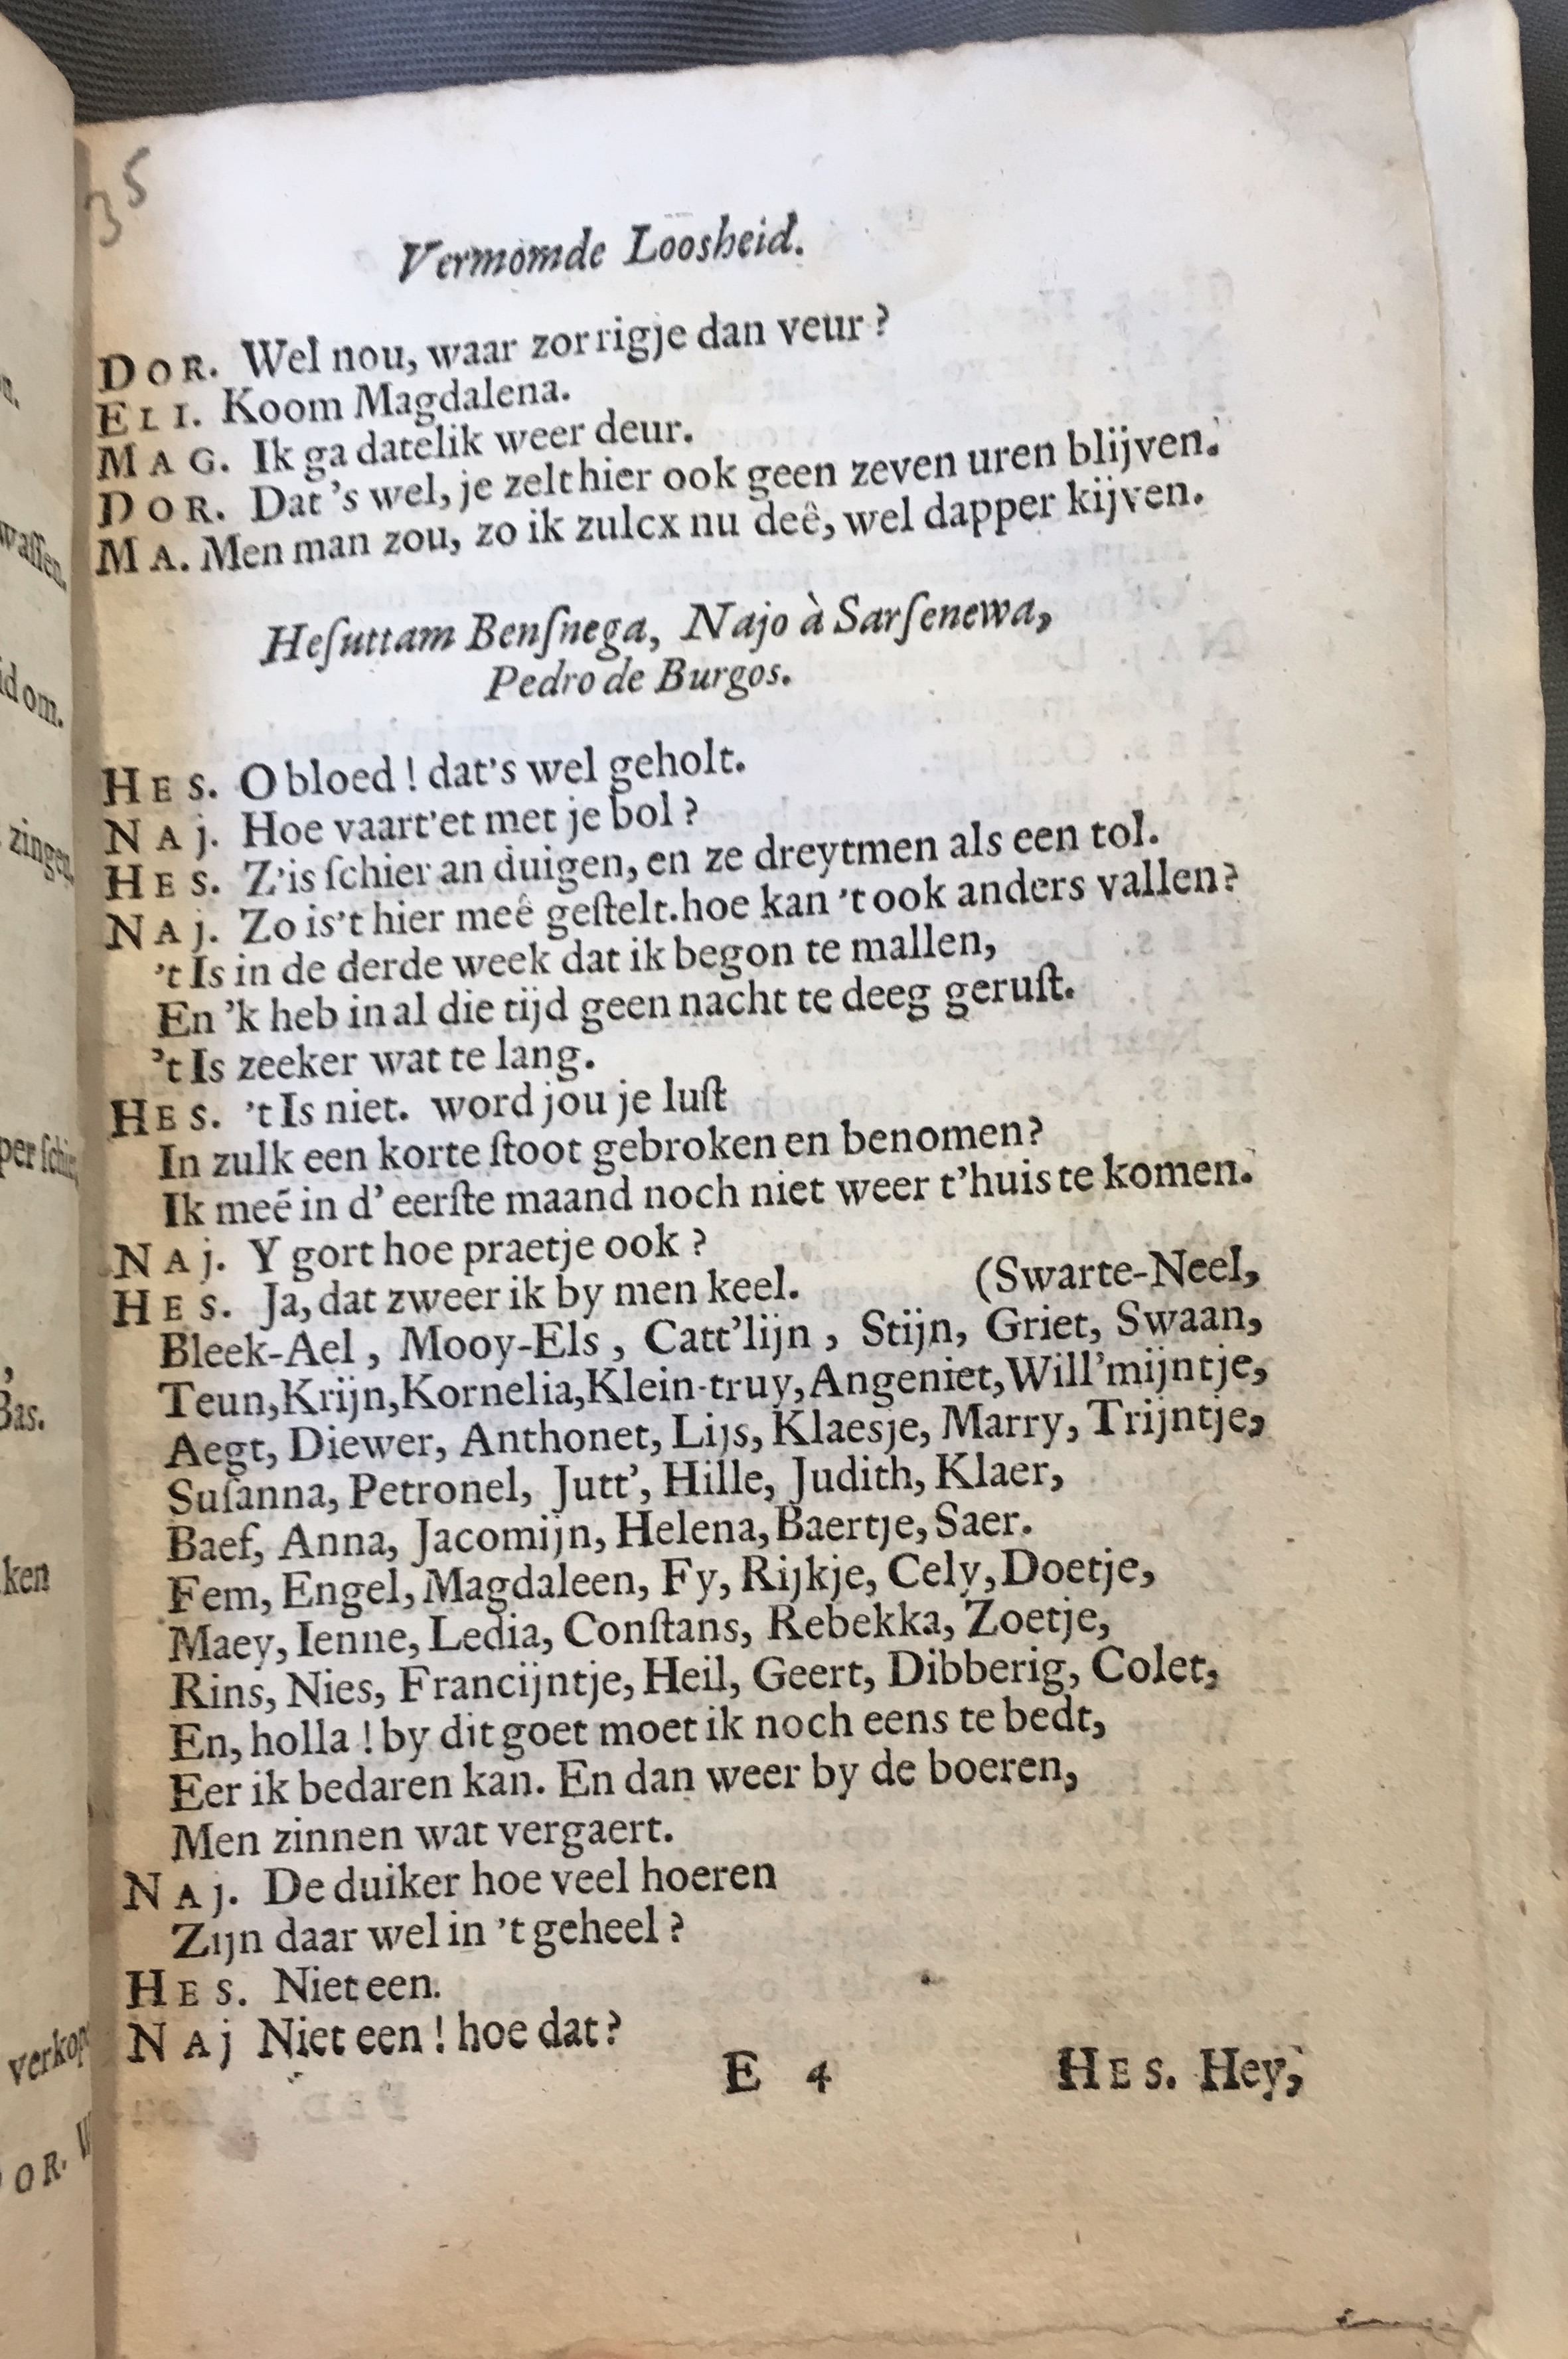 35
Vermomde Loosheid.
DOR. Wel nou, waar zorrigje dan veur?
ELI. Koom Magdalena.
MAG. Ik ga datelik weer deur.
DOR. Dat's wel, je zelt hier ook geen zeven uren blijven.
MA. Men man zou, zo ik zulcx nu deê, wel dapper kijven.
Heſuttam Benſnega, Najo à Sarſenewa,
Pedro de Burgos.
HES. O bloed! dat's wel geholt.
NAj. Hoe vaart'et met je bol?
HES. Z'is ſchier an duigen, en ze dreytmen als een tol.
NAj. Zo is't hier meê geſtelt. hoe kan 't ook anders vallen?
't Is in de derde week dat ik begon te mallen,
En 'k heb in al die tijd geen nacht te deeg geruſt.
't Is zeeker wat te lang.
HES. 't Is niet. word jou je luſt
In zulk een korte ſtoot gebroken en benomen?
Ik meé in d' eerſte maand noch niet weer t'huis te komen.
NAj. Y gort hoe praetje ook?
HES. Ja, dat zweer ik by men keel. (Swarte-Neel,
Bleek-Ael, Mooy-Els, Catt'lijn, Stijn, Griet, Swaan,
Teun, Krijn, Kornelia, Klein-truy, Angeniet, Will'mijntje,
Aegt, Diewer, Anthonet, Lijs, Klaesje, Marry, Trijntje,
Suſanna, Petronel, Jutt', Hille, Judith, Klaer,
Baef, Anna, Jacomijn, Helena, Baertje, Saer.
Fem, Engel, Magdaleen, Fy, Rijkje, Cely, Doetje,
Maey, Ienne, Ledia, Conſtans, Rebekka, Zoetje,
Rins, Nies, Francijntje, Heil, Geert, Dibberig, Colet,
En, holla! by dit goet moet ik noch eens te bedt,
Eer ik bedaren kan. En dan weer by de boeren,
Men zinnen wat vergaert.
NAj. De duiker hoe veel hoeren
Zijn daar wel in 't geheel?
HES. Niet een.
NAj Niet een! hoe dat?
E 4 HES. Hey,